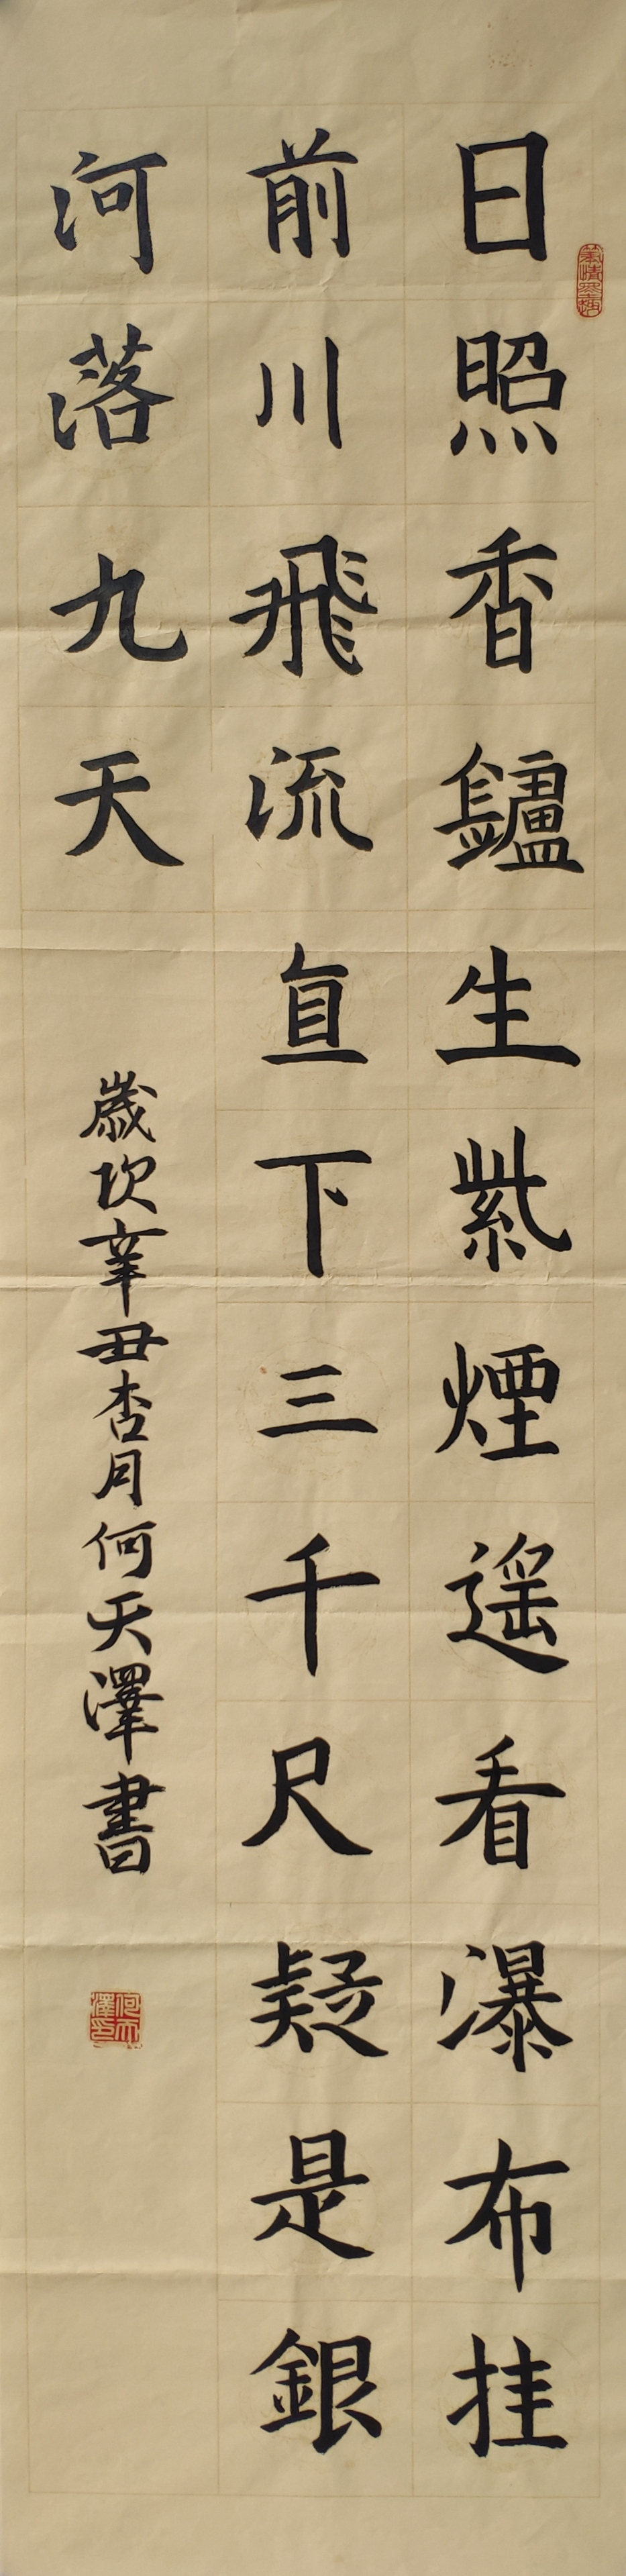 日照香鑪生紫煙遥看瀑布挂
前川飛流直下三千尺疑是銀
河落九天
歲次辛丑杏月何天澤書
何天澤印